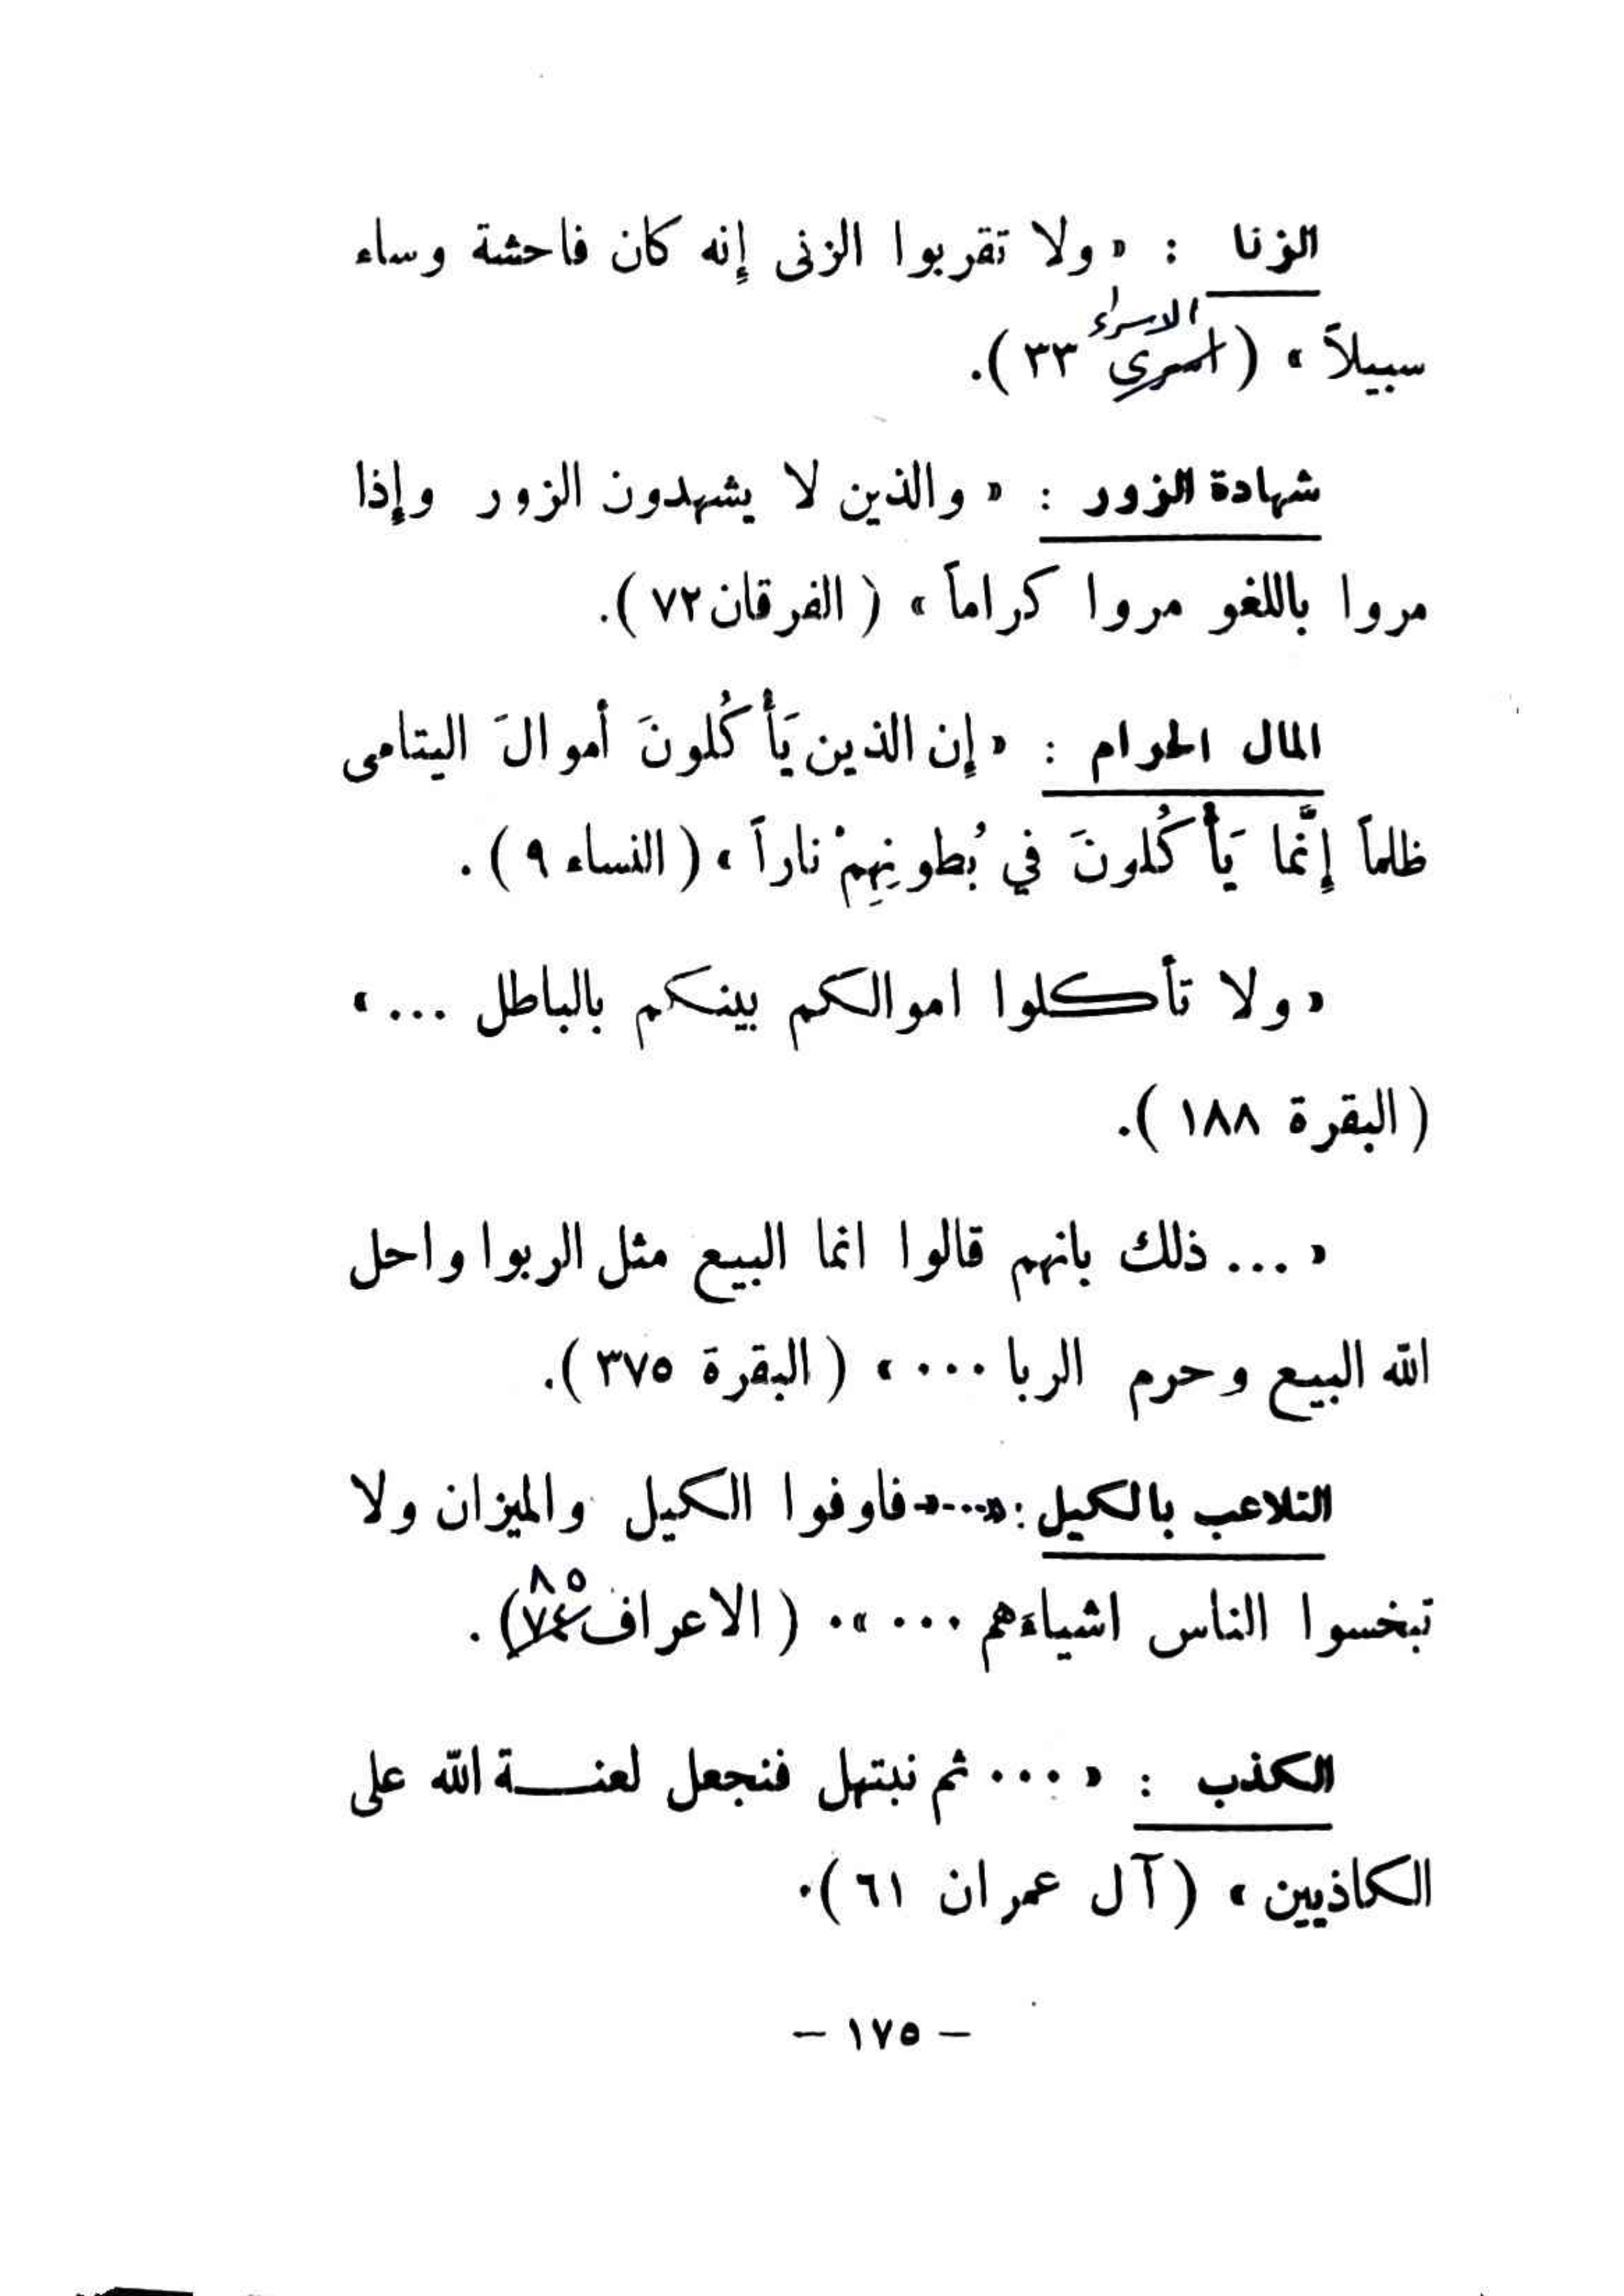 الزنا : « ولا تقربوا الزنى إنه كان فاحشة وساء
الاسراء
سبيلاً » ( اسرى ٣٣ ).
شهادة الزور : « والذين لا يشهدون الزور وإذا
مروا باللغو مروا كراماً » ( الفرقان ٧٢ ).
المال الحرام : « إن الذين يَأْكُلونَ أموالَ اليتامى
ظلماً إنَّما يَأْكُلونَ في بُطونِهِمْ ناراً » ( النساء ٩ ) .
« ولا تأكلوا اموالكم بينكم بالباطل ... »
( البقرة ١٨٨ ).
« ... ذلك بانهم قالوا انما البيع مثل الربوا واحل
الله البيع وحرم الربا ... » ( البقرة ٣٧٥ ).
التلاعب بالكيل : « ... فاوفوا الكيل والميزان ولا
٨٥
تبخسوا الناس اشياءهم ... » . ( الاعراف ٧٤ ) .
الكذب : « ... ثم نبتهل فنجعل لعنــة الله على
الكاذبين » ( آل عمران ٦١ ).
— ١٧٥ —